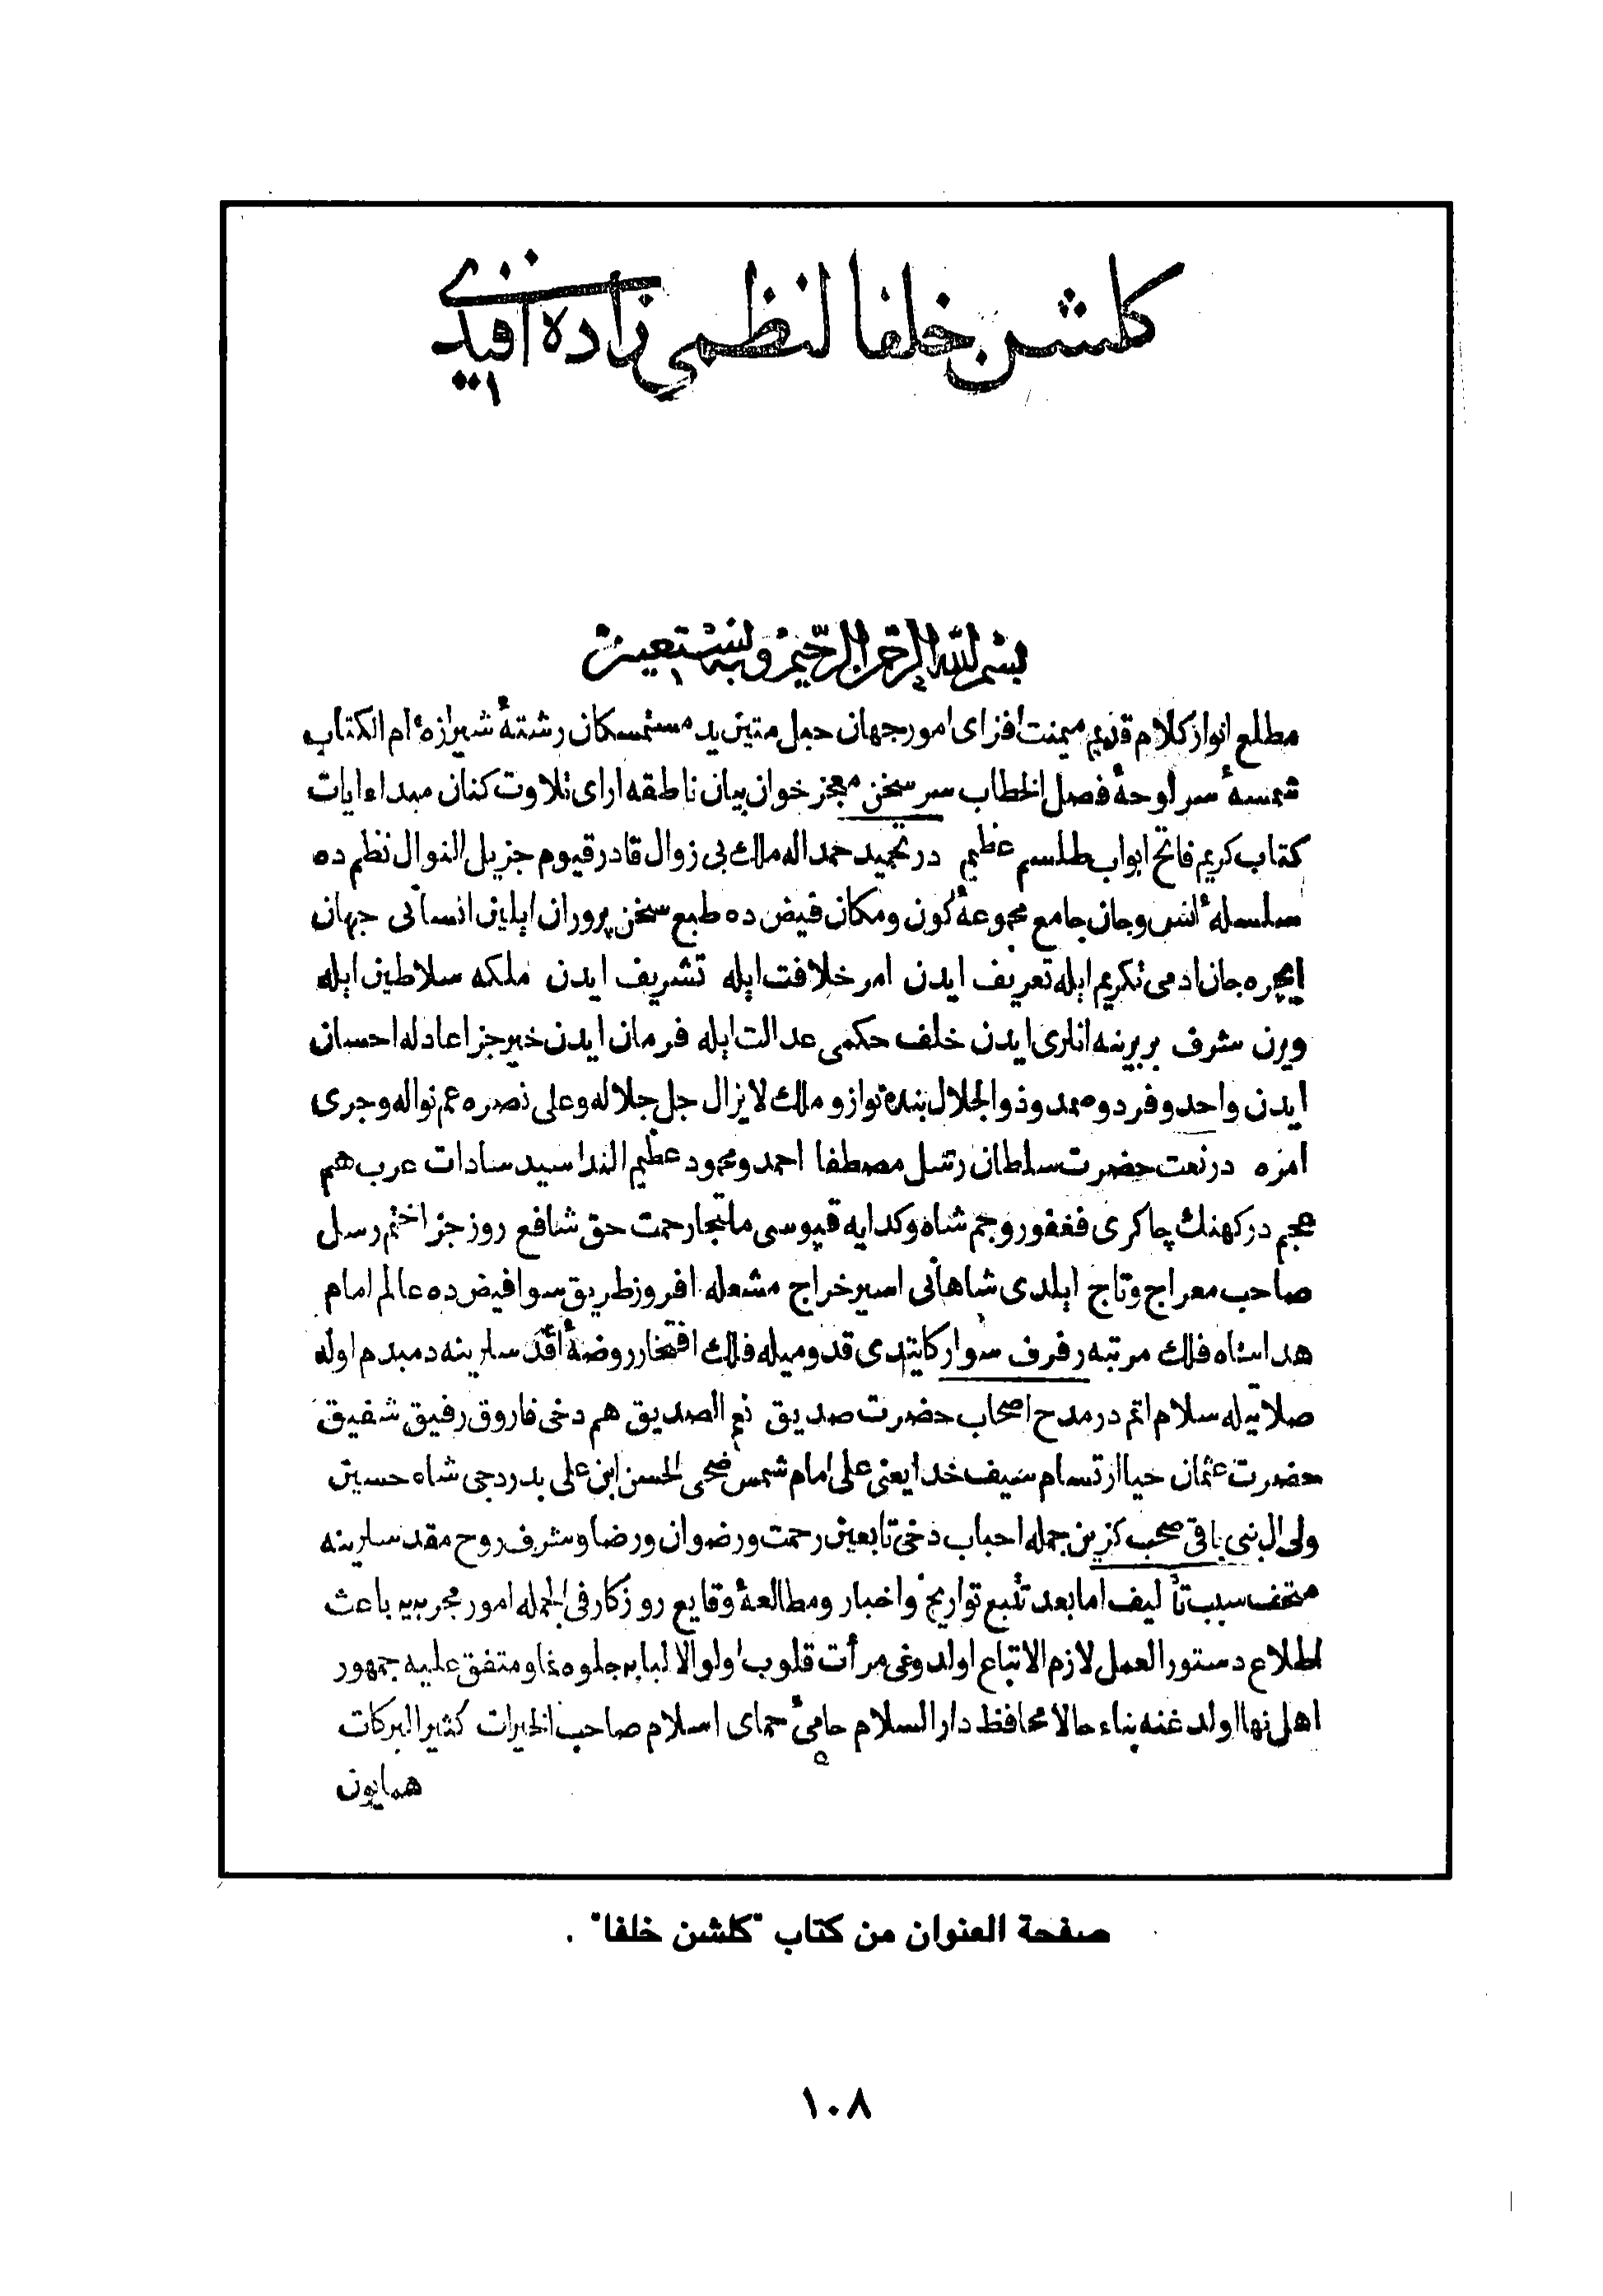 كلشن خلفا لنظمي زاده افندي
بسم الله الرحمن الرحيم وبه نستعين
مطلع انوار كلام قديم ميمنت افزاى امور جهان حبل متين يد مستمسكان رشتهٔ شيرازهٔ ام الكتاب
شمسهٔ سر لوحهٔ فصل الخطاب سر سخن معجز خوان بيان ناطقه اراى تلاوت كنان مبداء ايات
كتاب كريم فاتح ابواب طلسم عظيم در تحميد حمد اله ملك بى زوال قادر قيوم جزيل النوال نظم ده
سلسلهٔ انس وجان جامع مجموعهٔ كون ومكان فيض ده طبع سخن پروران ايلين انسانى جهان
ايچره جان ادمى تكريم ايله تعريف ايدن امر خلافت ايله تشريف ايدن ملكه سلاطين ايله
ويرن شرف بربرينه انلرى ايدن خلف حكمى عدالت ايله فرمان ايدن خير جزا عادله احسان
ايدن واحد وفرد وصمد وذو الجلال بنده نواز و ملك لايزال جل جلاله وعلى نصره عم نواله وجرى
امره در نعت حضرت سلطان رسل مصطفا احمد ومحمود عظيم الندا سيد سادات عرب هم
عجم دركهنك چاكرى فغفور وجم شاه وكدايه قپوسى ملتجا رحمت حق شافع روز جزا ختم رسل
صاحب معراج وتاج ايلدى شاهانى اسير خراج مشعله افروز طريق سوا فيض ده عالم امام
هدا شاه فلك مرتبه رفرف سوار كايتدى قدوميله فلك افتخار روضهٔ اقدسلرينه دمبدم اوله
صلاتيله سلام اتم در مدح اصحاب حضرت صديق نعم الصديق هم دخى فاروق رفيق شفيق
حضرت عثمان حيا ارتسام سيف خدا يعنى على امام شمس ضحى الحسن ابن على بدر دجى شاه حسين
ولى ال نبى باقى صحب كزين جمله احباب دخى تابعين رحمت ورضوان ورضا وشرف روح مقدسلرينه
متحف سبب تأليف اما بعد تتبع تواريخ واخبار ومطالعهٔ وقايع روزكار فى الجمله امور مجربيه باعث
اطلاع دستور العمل لازم الاتباع اولدوغى مرأت قلوب اولو الالبابه جلوه نما و متفق عليه جمهور
اهل نها اولدغنه بناء حالا محافظ دار السلام حامىٔ حماى اسلام صاحب الخيرات كثير البركات
همايون
صفحة العنوان من كتاب "كلشن خلفا" .
١٠٨